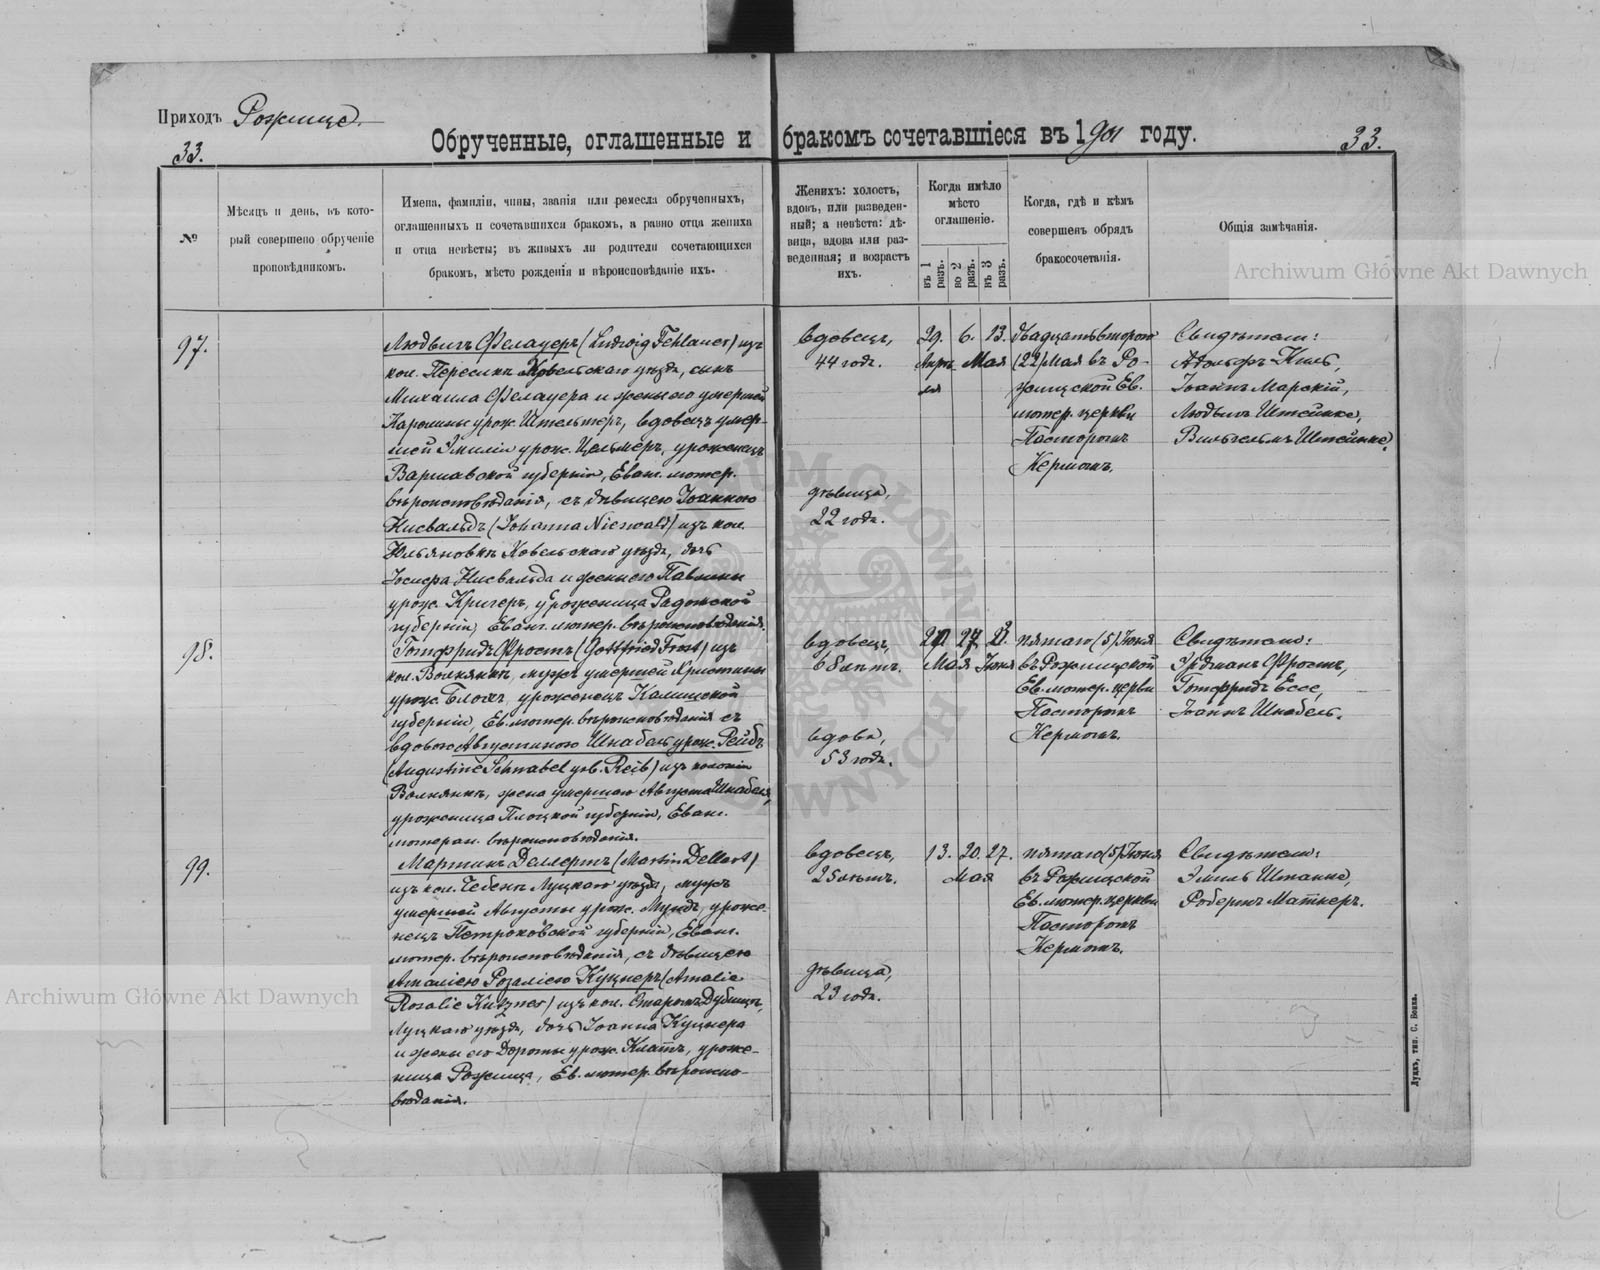 Приходъ Рожище.
33.
Обрученные, оглашенные и бракомъ сочетавшіеся въ 1901 году.
33.
№
Мѣсяцъ и день, въ кото-
рый совершено обрученіе
проповѣдникомъ.
Имена, фамиліи, чины, званія или ремесла обрученныхъ,
оглашенныхъ и сочетавшихся бракомъ, а равно отца жениха
и отца невѣсты; въ живыхъ ли родители сочетающихся
бракомъ, мѣсто рожденія и вѣроисповѣданіе ихъ.
Женихъ: холостъ,
вдовъ, или разведен-
ный; а невѣста: дѣ-
вица, вдова или раз-
веденная; и возрастъ
ихъ.
Когда имѣло
мѣсто
оглашеніе.
въ 1 разъ.
во 2 разъ.
въ 3 разъ.
Когда, гдѣ и кѣмъ
совершенъ обрядъ
бракосочетанія.
Общія замѣчанія.
97.
Людвигъ Фелауеръ (Ludwig Fehlauer) изъ
кол. Пересикъ Ковельскаго уѣзда, сынъ
Михаила Фелауера и жены его умершей
Каролины урож. Штельтеръ, вдовецъ умер-
шей Эмиліи урож. Цельмеръ, уроженецъ
Варшавской губерніи, Еванг. лютер.
вѣроисповѣданія, съ дѣвицею Іоанною
Нисвальдъ (Johanna Nieswald) изъ кол.
Юльяновкъ Ковельскаго уѣзда, дочь
Іосифа Нисвальда и жены его Павлины
урож. Кригеръ, уроженица Радомской
губерніи, Еванг. лютер. вѣроисповѣданія.
вдовецъ,
44 годъ.
дѣвица,
22 года.
29. 6. 13.
Апрѣ- Мая
ля
двадцать второго
(22) Мая въ Ро-
жищской Ев.
лютер. церкви
Пасторомъ
Керномъ.
Свидѣтели:
Адольфъ Киль,
Іоаннъ Марскій,
Людвигъ Штейнке,
Вильгельмъ Штейнке.
98.
Готфридъ Фростъ (Gottfried Frost) изъ
кол. Волнянкъ, мужъ умершей Христины
урож. Блохъ, уроженецъ Калишской
губерніи, Ев. лютер. вѣроисповѣданія съ
вдовою Августиною Шнабель урож. Рейбъ
(Augustine Schnabel geb. Reib) изъ колоніи
Волнянкъ, жена умершаго Августа Шнабеля,
уроженица Плоцкой губерніи, Еванг.
лютеран. вѣроисповѣданія.
вдовецъ,
68 лѣтъ.
вдова,
53 года.
27
Мая Іюня
пятаго (5) Іюня
въ Рожищской
Ев. лютер. церкви
Пасторомъ
Керномъ.
Свидѣтели:
Эрдманъ Фростъ,
Готфридъ Ессе,
Іоаннъ Шнабель.
99.
Мартинъ Деллертъ (Martin Dellert)
изъ кол. Чебень Луцкаго уѣзда, мужъ
умершей Августы урож. Мундъ, уроже-
нецъ Петроковской губерніи, Еванг.
лютер. вѣроисповѣданія, съ дѣвицею
Амаліею Розаліею Куцнеръ (Amalie
Rosalie Kutzner) изъ кол. Старомъ Дубищъ,
Луцкаго уѣзда, дочь Іоанна Куцнера
и жены его Дороты урож. Клаттъ, уроже-
ница Рожища, Ев. лютер. вѣроиспо-
вѣданія.
вдовецъ,
25 лѣтъ.
дѣвица,
23 года.
13. 20. 27.
Мая
пятаго (5) Іюня
въ Рожищской
Ев. лютер. церкви
Пасторомъ
Керномъ.
Свидѣтели:
Эмиль Штанке,
Робертъ Маткеръ.
Луцкъ, тип. С. Бонка.
Archiwum Główne Akt Dawnych
Archiwum Główne Akt Dawnych